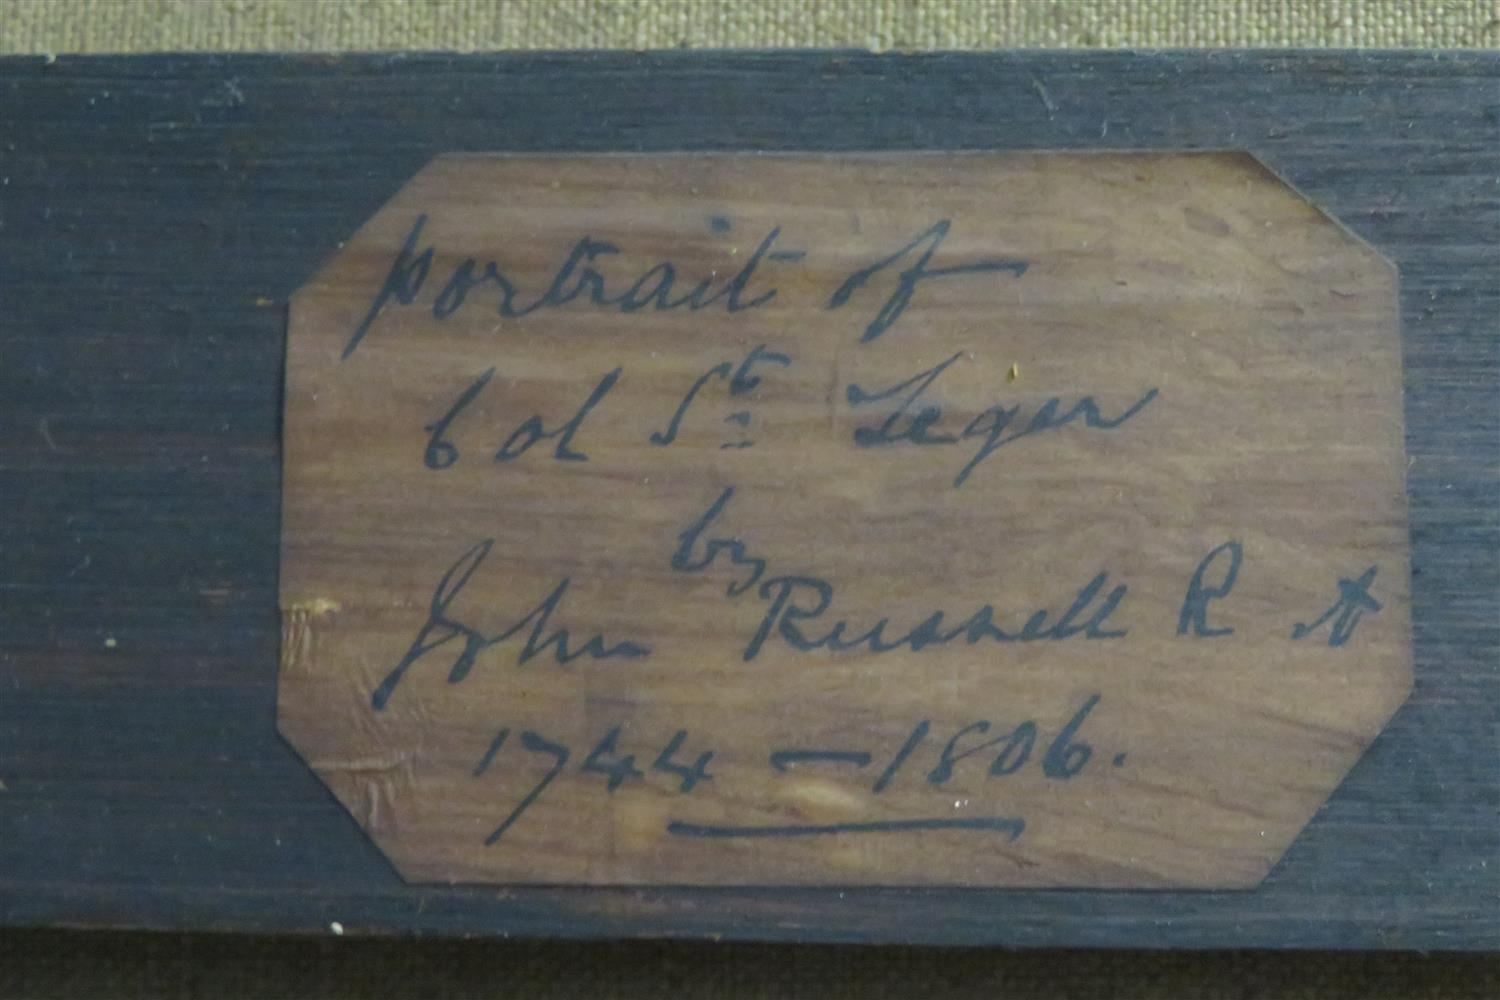 portrait of
Col St Leger
by
John Russell R A
1744 — 1806.